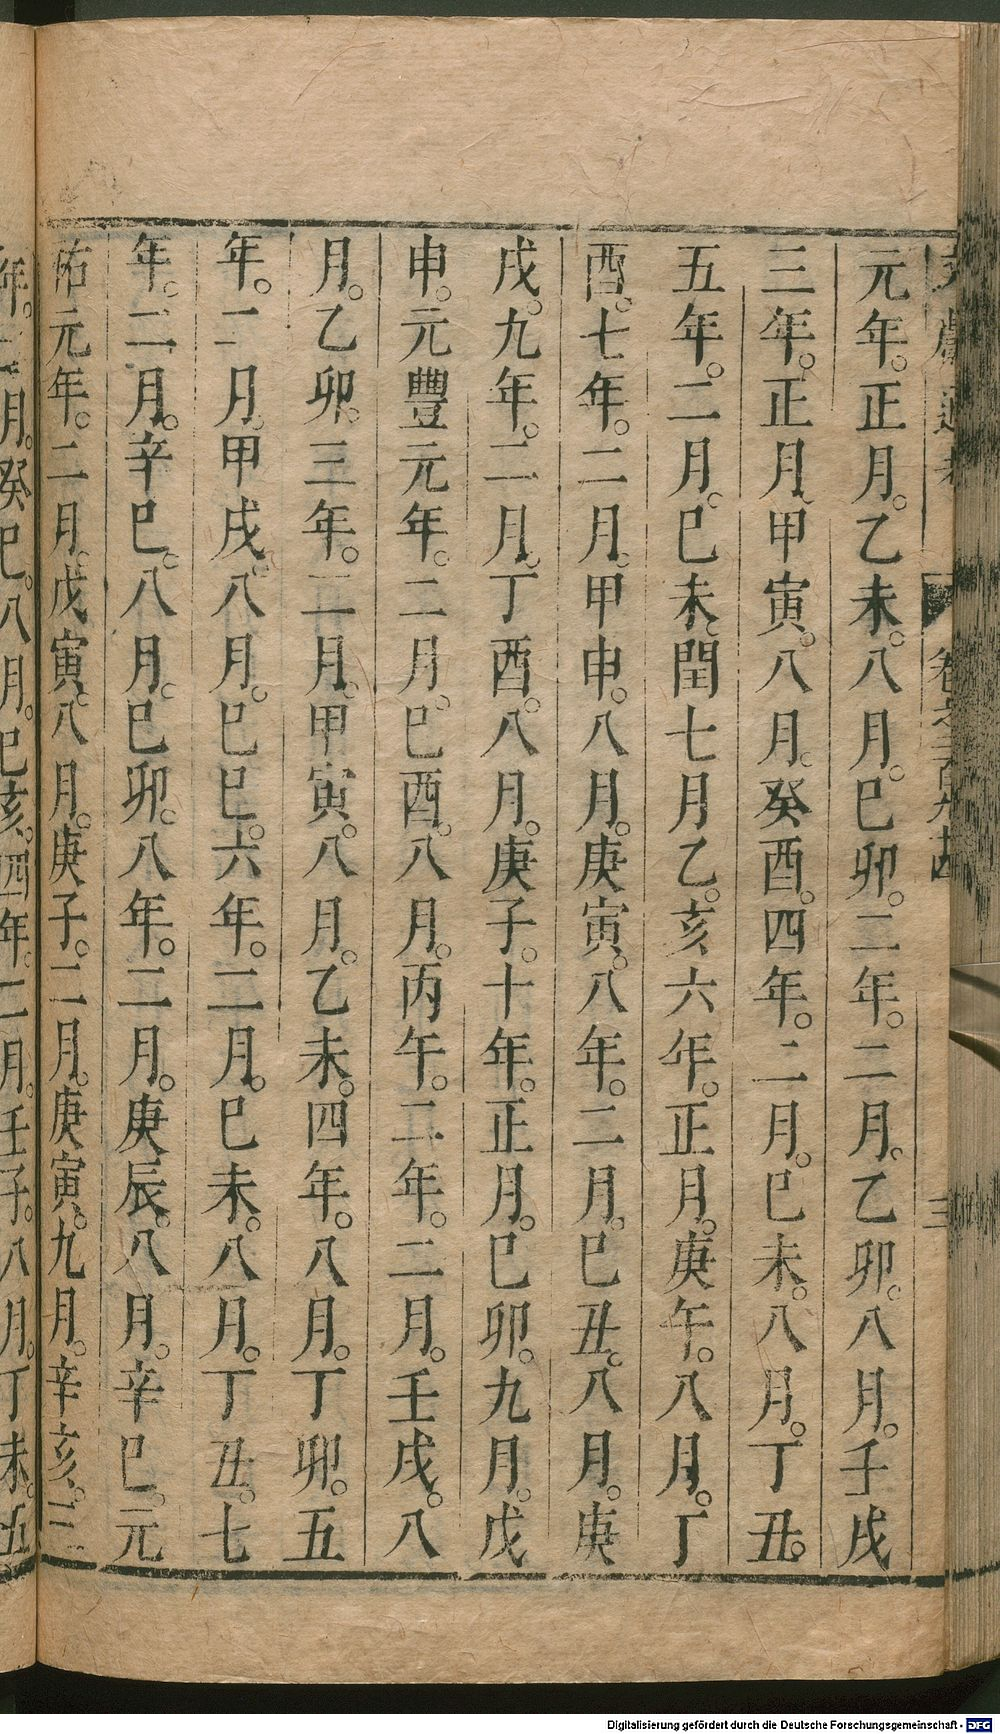 元年。正月。乙未。八月。巳卯。二年。二月。乙卯。八月。壬戌
三年。正月。甲寅。八月。癸酉。四年。二月。巳未。八月。丁丑。
五年。二月。巳未。閏七月乙。亥六年。正月。庚午。八月。丁
酉。七年。二月。甲申。八月。庚寅。八年。二月。巳丑。八月。庚
戌。九年。二月。丁酉。八月。庚子。十年。正月。巳卯。九月。戊
申。元豐元年。二月。巳酉。八月。丙午。二年。二月。壬戌。八
月。乙卯。三年。二月。甲寅。八月。乙未。四年。八月。丁卯。五
年。二月。甲戌。八月。巳巳。六年。二月。巳未。八月。丁丑。七
年。二月。辛巳。八月。巳卯。八年。二月。庚辰。八月。辛巳。元
祐元年。二月。戊寅。八月。庚子。二月。庚寅。九月。辛亥。三
年。二月。癸巳。八月。巳亥。四年。二月。壬子。八月。丁未。五
卷之三百九十四
三
Digitalisierung gefördert durch die Deutsche Forschungsgemeinschaft - DFG